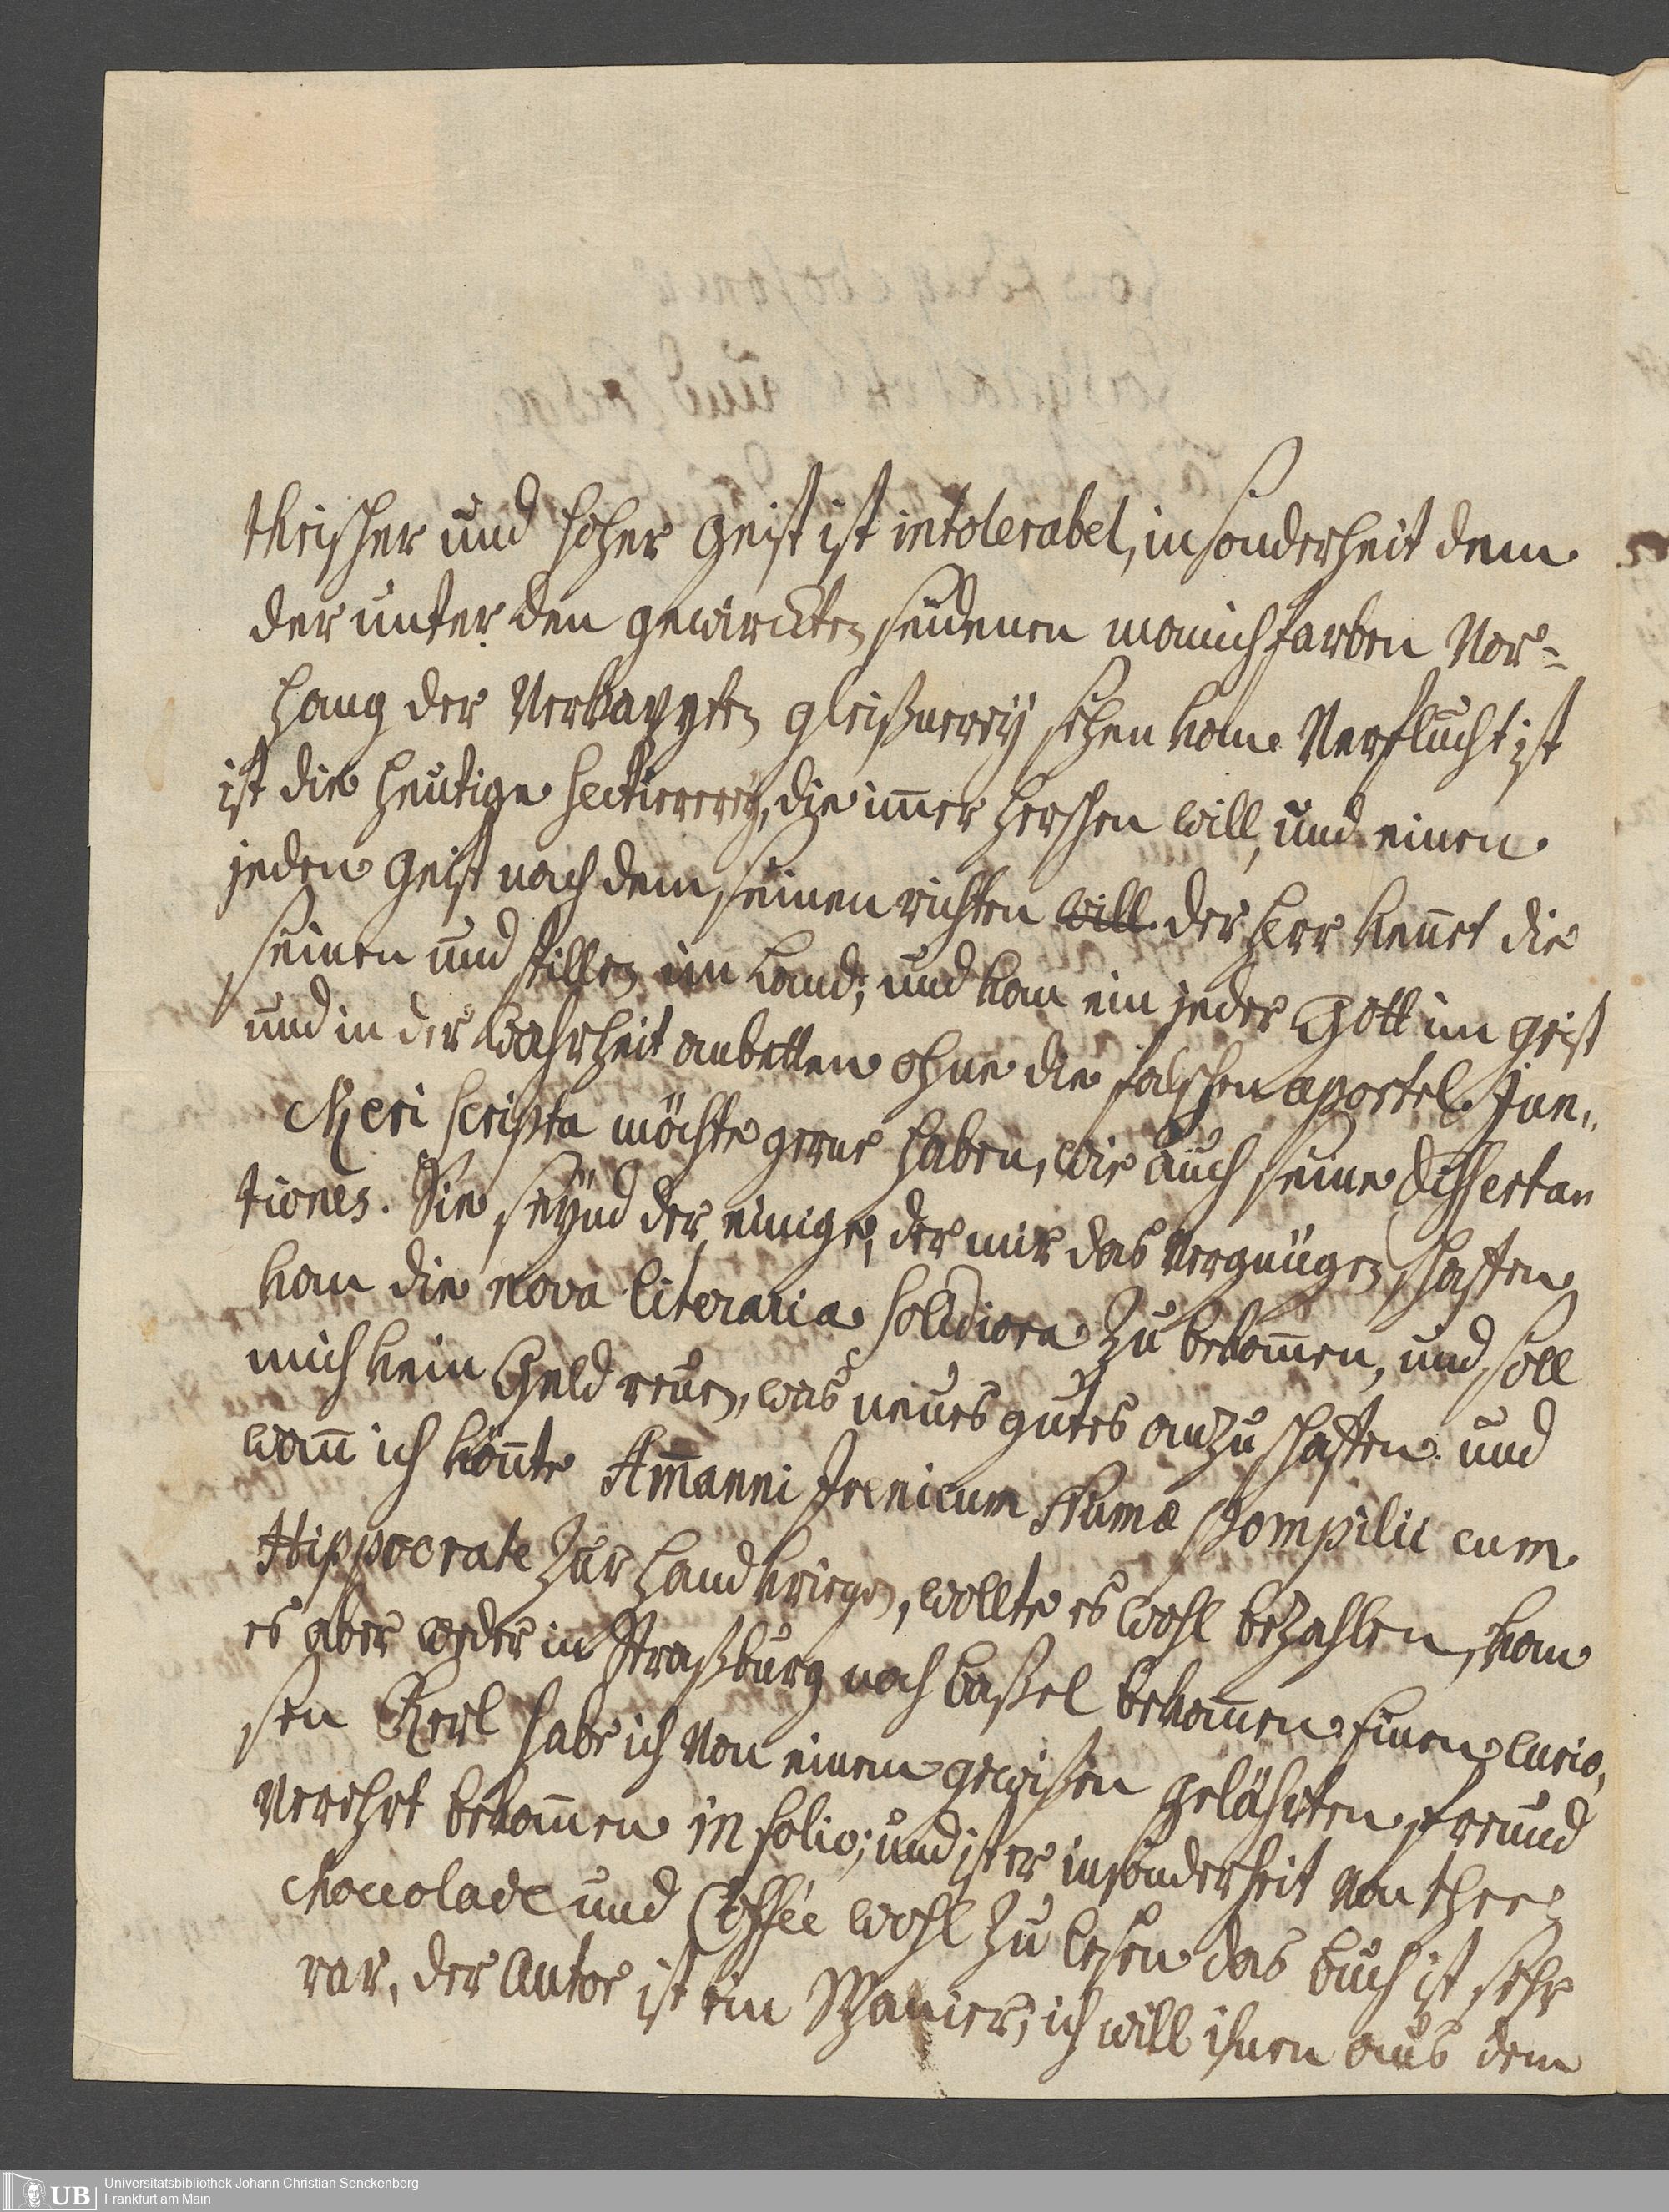 thrischer und hoher Geist ist intolerabel, insonderheit dem
der unter den gewirckten seidenen manichfarben Vor=
hang der Verkappten gleißnerey sehen kan. Verflucht ist
ist die heutige sectiererey, die im̅er herschen will, und einen
jeden Geist nach dem seinen richten will. der Herr ken̅et die
seinen und stillen im Land; und kan ein jeder Gott im geist
und in der Wahrheit anbetten ohne die falschen apostel. Jun,,
keri scripta möchte gerne haben, wie auch seine Disserta,,
tiones. Sie seynd der einige, der mir das Vergnügen schaffen
kan die nova literaria solidiora zu bekom̅en, und soll
mich kein Geld reuen, was neues gutes anzuschaffen. und
wan̅ ich kön̅te Am̅anni Irenicum Numæ Pompilii cum
Hippocrate zur hand kriegen, wollte es wohl bezahlen, kan
es aber weder in Straßburg noch baßel bekom̅en. Einen curio,
sen Kerl habe ich von einem gewißen gelährten freund
verehrt bekom̅en in folio; und ist er insonderheit von thee,
choccolade und Coffée wohl zu lesen das buch ist sehr
rar, der Autor ist ein Spanier; ich will ihnen aus dem
UB
Universitätsbibliothek Johann Christian Senckenberg
Frankfurt am Main